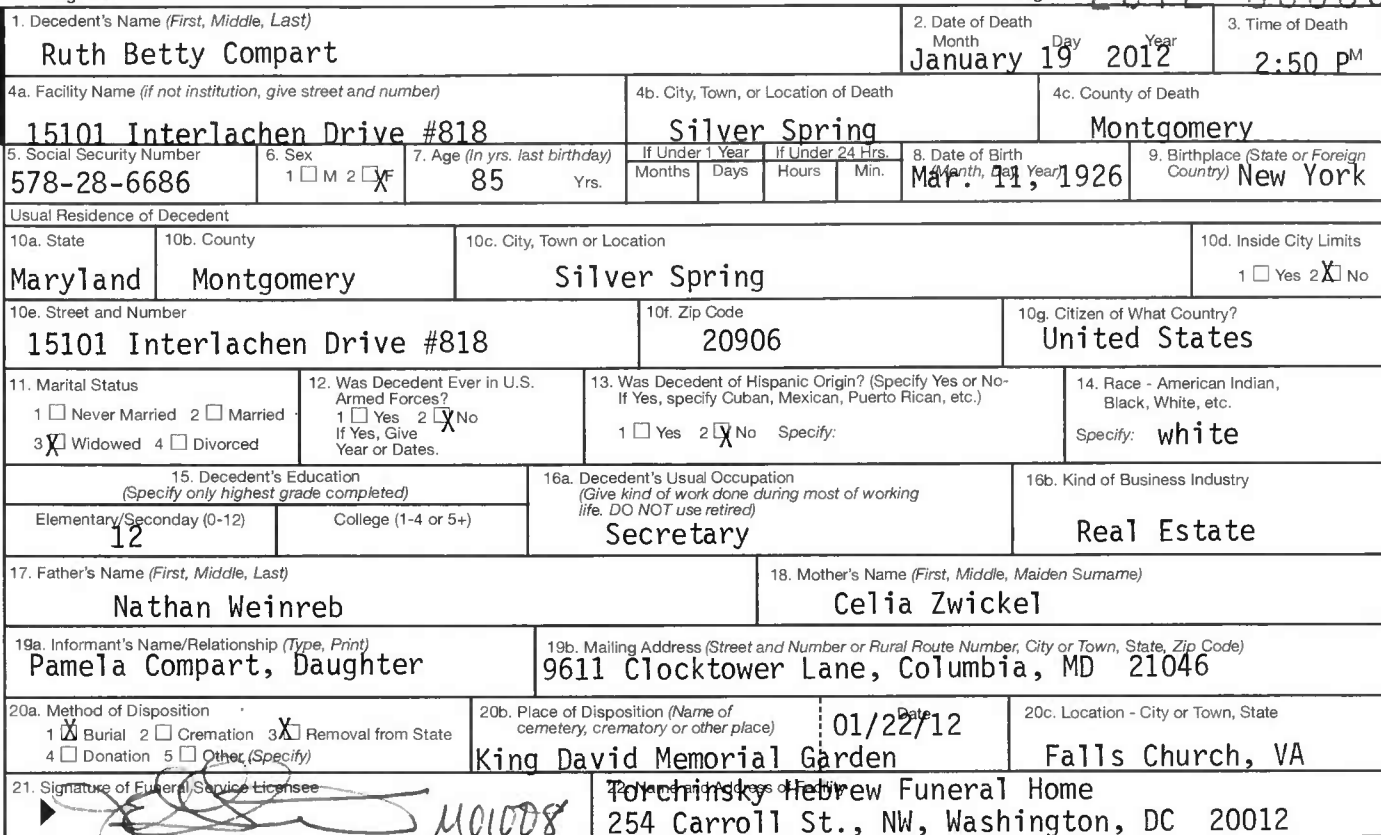 1. Decedent's Name (First, Middle, Last)
Ruth Betty Compart
2. Date of Death
Month Day Year
January 19 2012
3. Time of Death
2:50 PM
4a. Facility Name (if not institution, give street and number)
15101 Interlachen Drive #818
4b. City, Town, or Location of Death
Silver Spring
4c. County of Death
Montgomery
5. Social Security Number
578-28-6686
6. Sex
1 ☐ M 2 ☒ F
7. Age (in yrs. last birthday)
85 Yrs.
If Under 1 Year
Months Days
If Under 24 Hrs.
Hours Min.
8. Date of Birth
(Month, Day, Year)
Mar. 11, 1926
9. Birthplace (State or Foreign
Country) New York
Usual Residence of Decedent
10a. State
Maryland
10b. County
Montgomery
10c. City, Town or Location
Silver Spring
10d. Inside City Limits
1 ☐ Yes 2 ☒ No
10e. Street and Number
15101 Interlachen Drive #818
10f. Zip Code
20906
10g. Citizen of What Country?
United States
11. Marital Status
1 ☐ Never Married 2 ☐ Married
3 ☒ Widowed 4 ☐ Divorced
12. Was Decedent Ever in U.S.
Armed Forces?
1 ☐ Yes 2 ☒ No
If Yes, Give
Year or Dates.
13. Was Decedent of Hispanic Origin? (Specify Yes or No-
If Yes, specify Cuban, Mexican, Puerto Rican, etc.)
1 ☐ Yes 2 ☒ No Specify:
14. Race - American Indian,
Black, White, etc.
Specify: white
15. Decedent's Education
(Specify only highest grade completed)
Elementary/Seconday (0-12)
12
College (1-4 or 5+)
16a. Decedent's Usual Occupation
(Give kind of work done during most of working
life. DO NOT use retired)
Secretary
16b. Kind of Business Industry
Real Estate
17. Father's Name (First, Middle, Last)
Nathan Weinreb
18. Mother's Name (First, Middle, Maiden Surname)
Celia Zwickel
19a. Informant's Name/Relationship (Type, Print)
Pamela Compart, Daughter
19b. Mailing Address (Street and Number or Rural Route Number, City or Town, State, Zip Code)
9611 Clocktower Lane, Columbia, MD 21046
20a. Method of Disposition
1 ☒ Burial 2 ☐ Cremation 3 ☒ Removal from State
4 ☐ Donation 5 ☐ Other (Specify)
20b. Place of Disposition (Name of
cemetery, crematory or other place)
King David Memorial Garden
Date
01/22/12
20c. Location - City or Town, State
Falls Church, VA
21. Signature of Funeral Service Licensee
M01008
22. Name and Address of Facility
Torchinsky Hebrew Funeral Home
254 Carroll St., NW, Washington, DC 20012